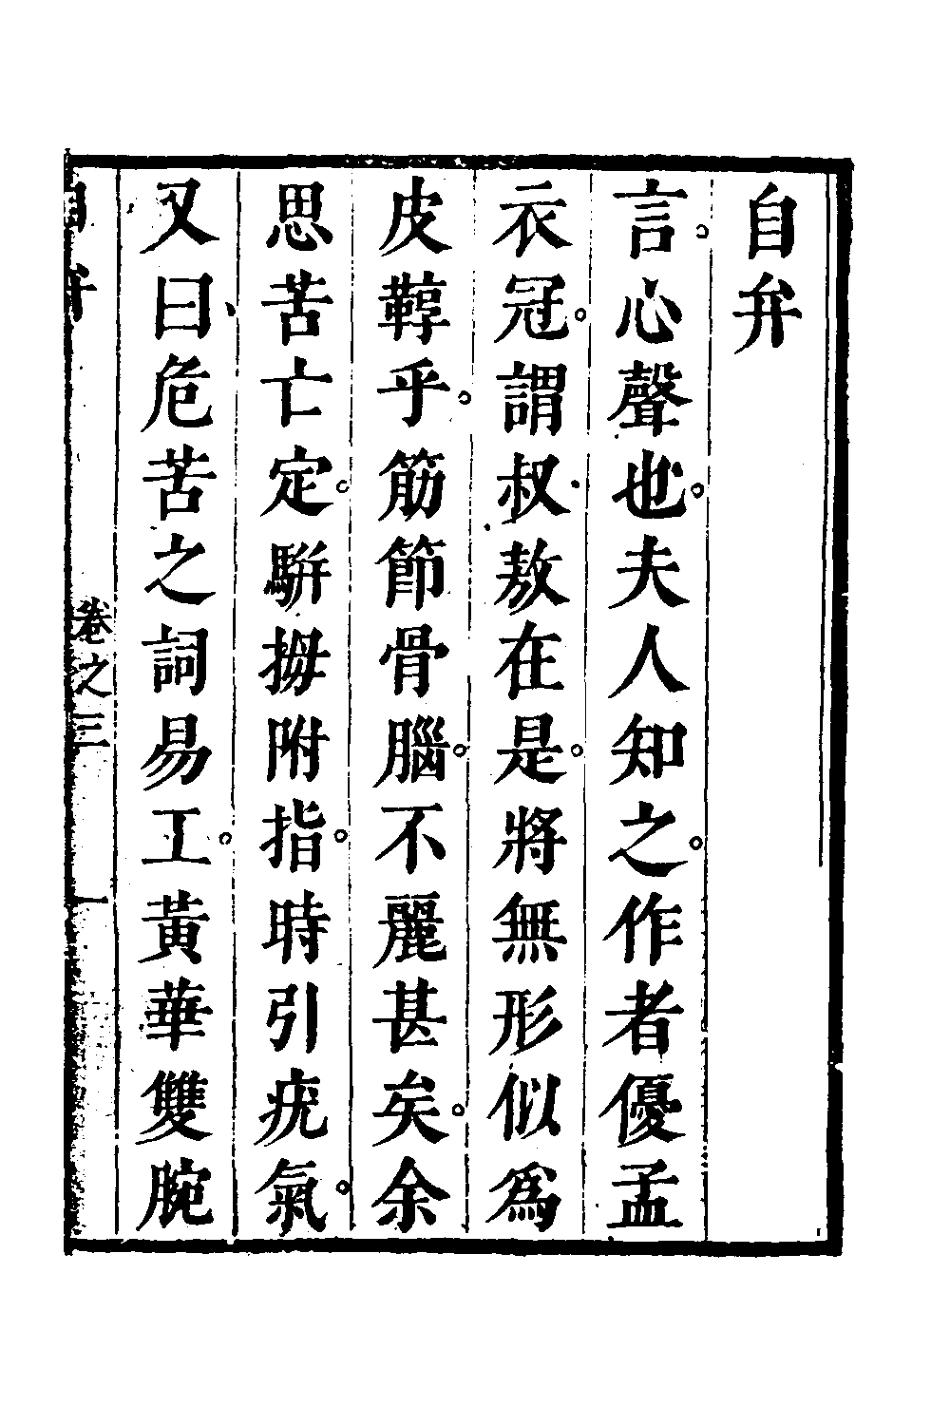 自弁
言。心聲也。夫人知之。作者優孟
衣冠。謂叔敖在是。將無形似為
皮鞟乎。筋節骨腦。不麗甚矣。余
思苦亡定。駢拇附指。時引疣氣。
又曰、危苦之詞易工。黃華雙腕
卷之三 一